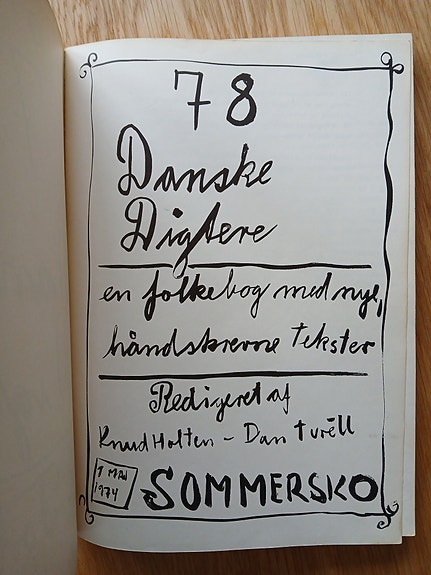 78
Danske
Digtere
en folkebog med nye,
håndskrevne Tekster
Redigeret af
Knud Holten - Dan Turéll
1 MAJ
1974
SOMMERSKO